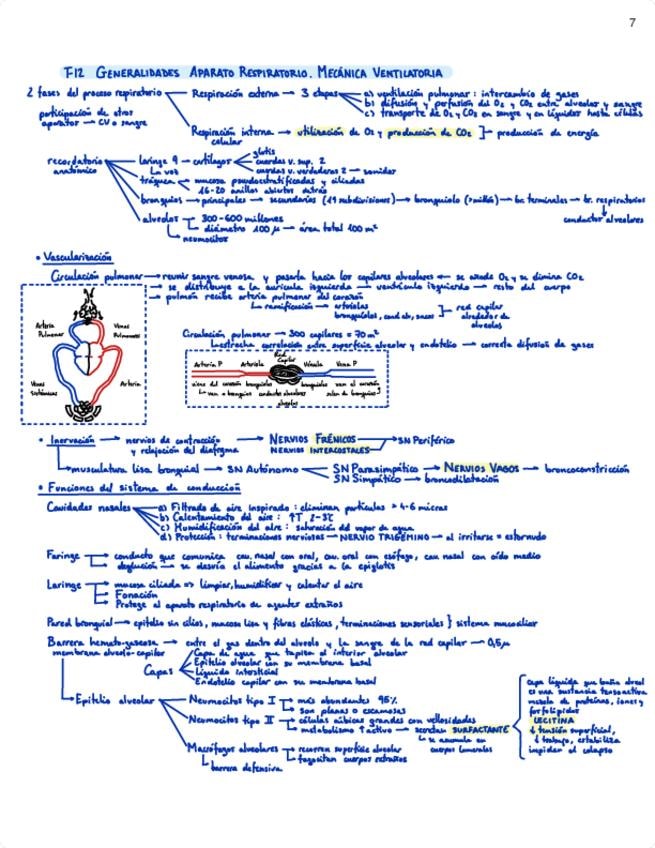 7
T-12 GENERALIDADES APARATO RESPIRATORIO. MECÁNICA VENTILATORIA
2 fases del proceso respiratorio
participación de otros
aparatos → CV o sangre
Respiración externa → 3 etapas
a) ventilación pulmonar: intercambio de gases
b) difusión y perfusión del O2 y CO2 entre alveolar y sangre
c) transporte de O2 y CO2 en sangre y en líquidos hasta células
Respiración interna → utilización de O2 y producción de CO2 ]→ producción de energía
celular
recordatorio
anatómico
laringe 9 → cartílagos
glotis
cuerdas v. sup. 2
cuerdas v. verdaderas 2 → sonidos
La voz
tráquea → mucosa pseudoestratificadas y ciliadas
16-20 anillos abiertos detrás
bronquios → principales → secundarios (19 subdivisiones) → bronquiolo (>millón) → br. terminales → br. respiratorios
conductor alveolares
alveolos
300-600 millones
diámetro 100 μ → área total 100 m²
neumocitos
• Vascularización
Circulación pulmonar → reunir sangre venosa y pasarla hacia los capilares alveolares ← se añade O2 y se elimina CO2
→ se distribuye a la aurícula izquierda → ventrículo izquierdo → resto del cuerpo
→ pulmón recibe arteria pulmonar del corazón
↳ ramificación → arteriolas
bronquiolos, cond alv, sacos
red capilar
alrededor de
alveolos
Arteria
Pulmonar
Venas
Pulmonares
Venas
sistémicas
Arteria
Circulación pulmonar → 300 capilares = 70 m²
estrecha correlación entre superficie alveolar y endotelio → correcta difusión de gases
Arteria P
Arteriola
Red
Capilar
Vénula
Vena P
viene del corazón
bronquiolos
bronquiolos
van al corazón
van a bronquios
conductos alveolares
alveolos
salen de bronquios
• Inervación → nervios de contracción
y relajación del diafragma
NERVIOS FRÉNICOS
NERVIOS INTERCOSTALES
→ SN Periférico
→ musculatura lisa bronquial → SN Autónomo
SN Parasimpático → NERVIOS VAGOS → broncoconstricción
SN Simpático → broncodilatación
• Funciones del sistema de conducción
Cavidades nasales
a) Filtrado de aire inspirado: eliminan partículas > 4-6 micras
b) Calentamiento del aire: ↑T 2-3℃
c) Humidificación del aire: saturación del vapor de agua
d) Protección: terminaciones nerviosas → NERVIO TRIGÉMINO → al irritarse = estornudo
Faringe
conducto que comunica cav. nasal con oral, cav. oral con esófago, cav nasal con oído medio
deglución → se desvía el alimento gracias a la epiglotis
Laringe
mucosa ciliada => limpiar, humidificar y calentar el aire
Fonación
Protege al aparato respiratorio de agentes extraños
Pared bronquial → epitelio sin cilios, mucosa lisa y fibras elásticas, terminaciones sensoriales } sistema mucociliar
Barrera hemato-gaseosa → entre el gas dentro del alveolo y la sangre de la red capilar → 0,5μ
membrana alveolo-capilar
Capas
Capa de agua que tapiza el interior alveolar
Epitelio alveolar con su membrana basal
Líquido intersticial
Endotelio capilar con su membrana basal
Epitelio alveolar
Neumocitos tipo I
más abundantes 95%
son planas o escamosas
Neumocitos tipo II
células cúbicas grandes con vellosidades
metabolismo ↑activo → secretan SURFACTANTE
se acumula en
cuerpos lamerales
Macrófagos alveolares
recorren superficie alveolar
fagocitan cuerpos extraños
barrera defensiva
capa líquida que baña alveol
es una sustancia tensoactiva
mezcla de proteínas, iones y
forfolípidos
LECITINA
↓ tensión superficial,
↓ trabajo, estabiliza
impider el colapso